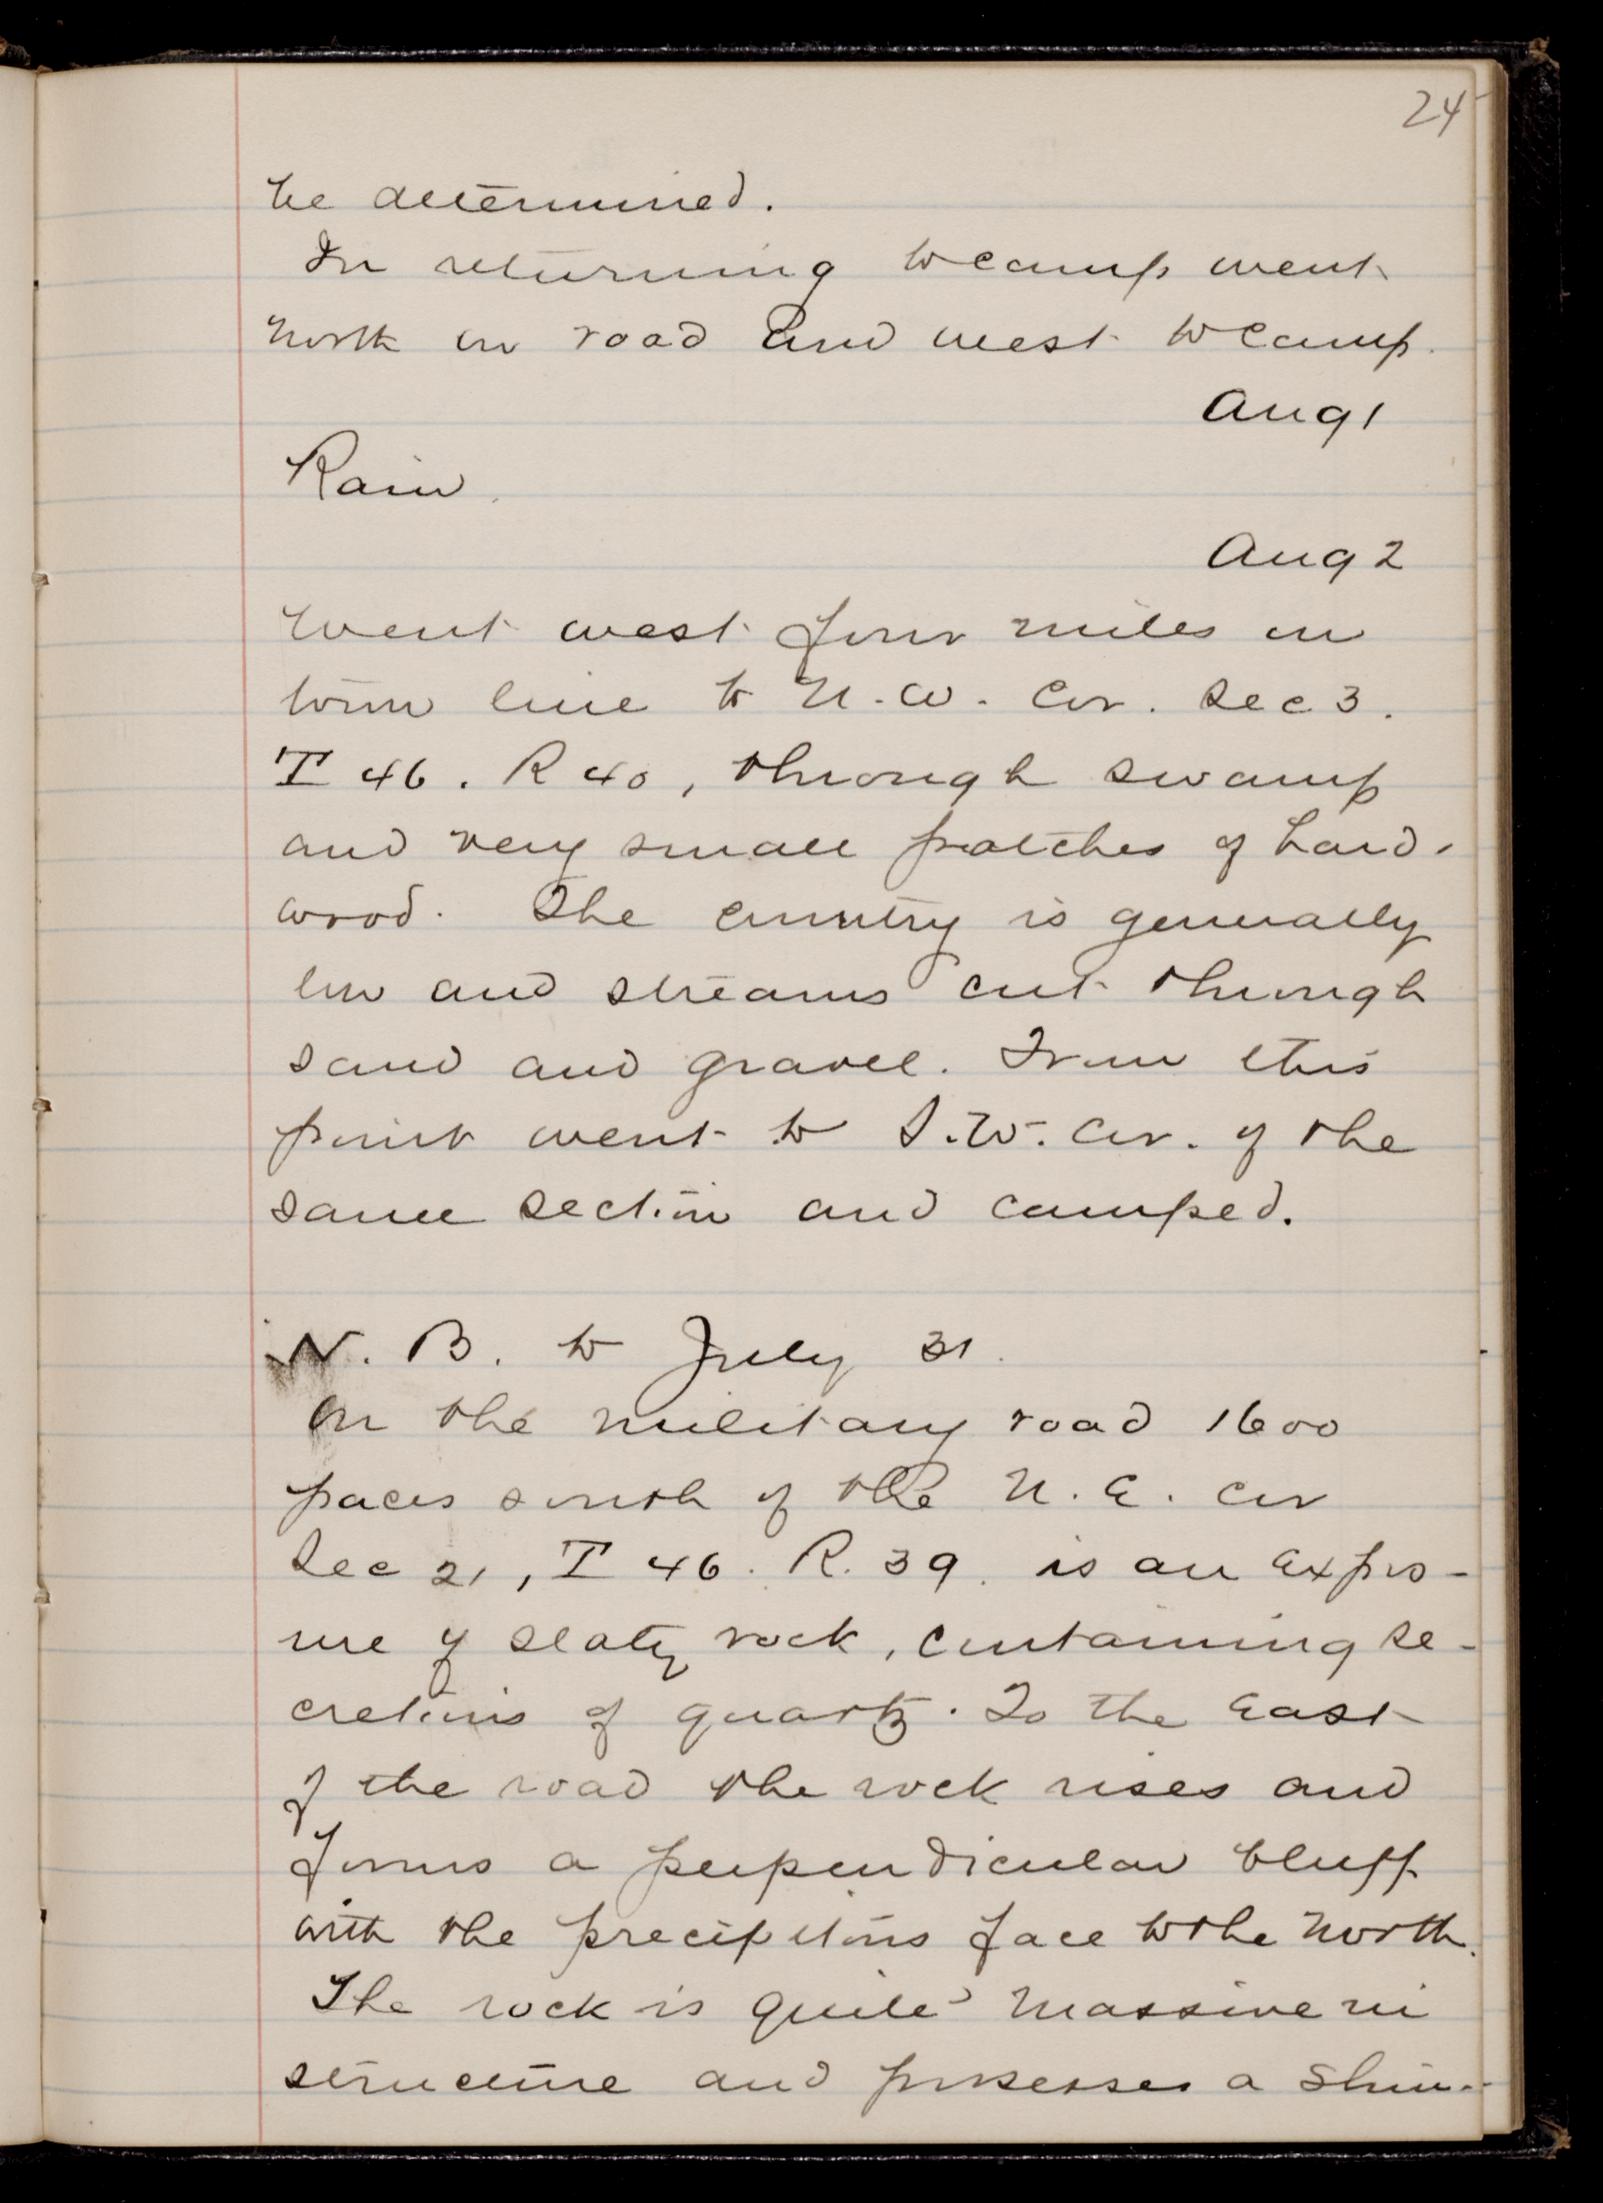 24
be determined.
In returning to camp went
north on road and west to camp.
Aug 1
Rain.
Aug 2
Went west four miles on
town line to N.W. Cor. Sec 3.
T 46. R 40, through swamp
and very small patches of hard-
wood. The country is generally
low and streams cut through
sand and gravel. From this
point went to S.W. Cor. of the
same section and camped.
N. B. to July 31.
On the military road 1600
paces south of the N. E. Cor
Sec 21, T 46. R. 39. is an expos-
ure of slaty rock, containing se-
cretions of quartz. To the East
of the road the rock rises and
forms a perpendicular bluff
with the precipitous face to the north.
The rock is quite massive in
structure and possesses a shin-